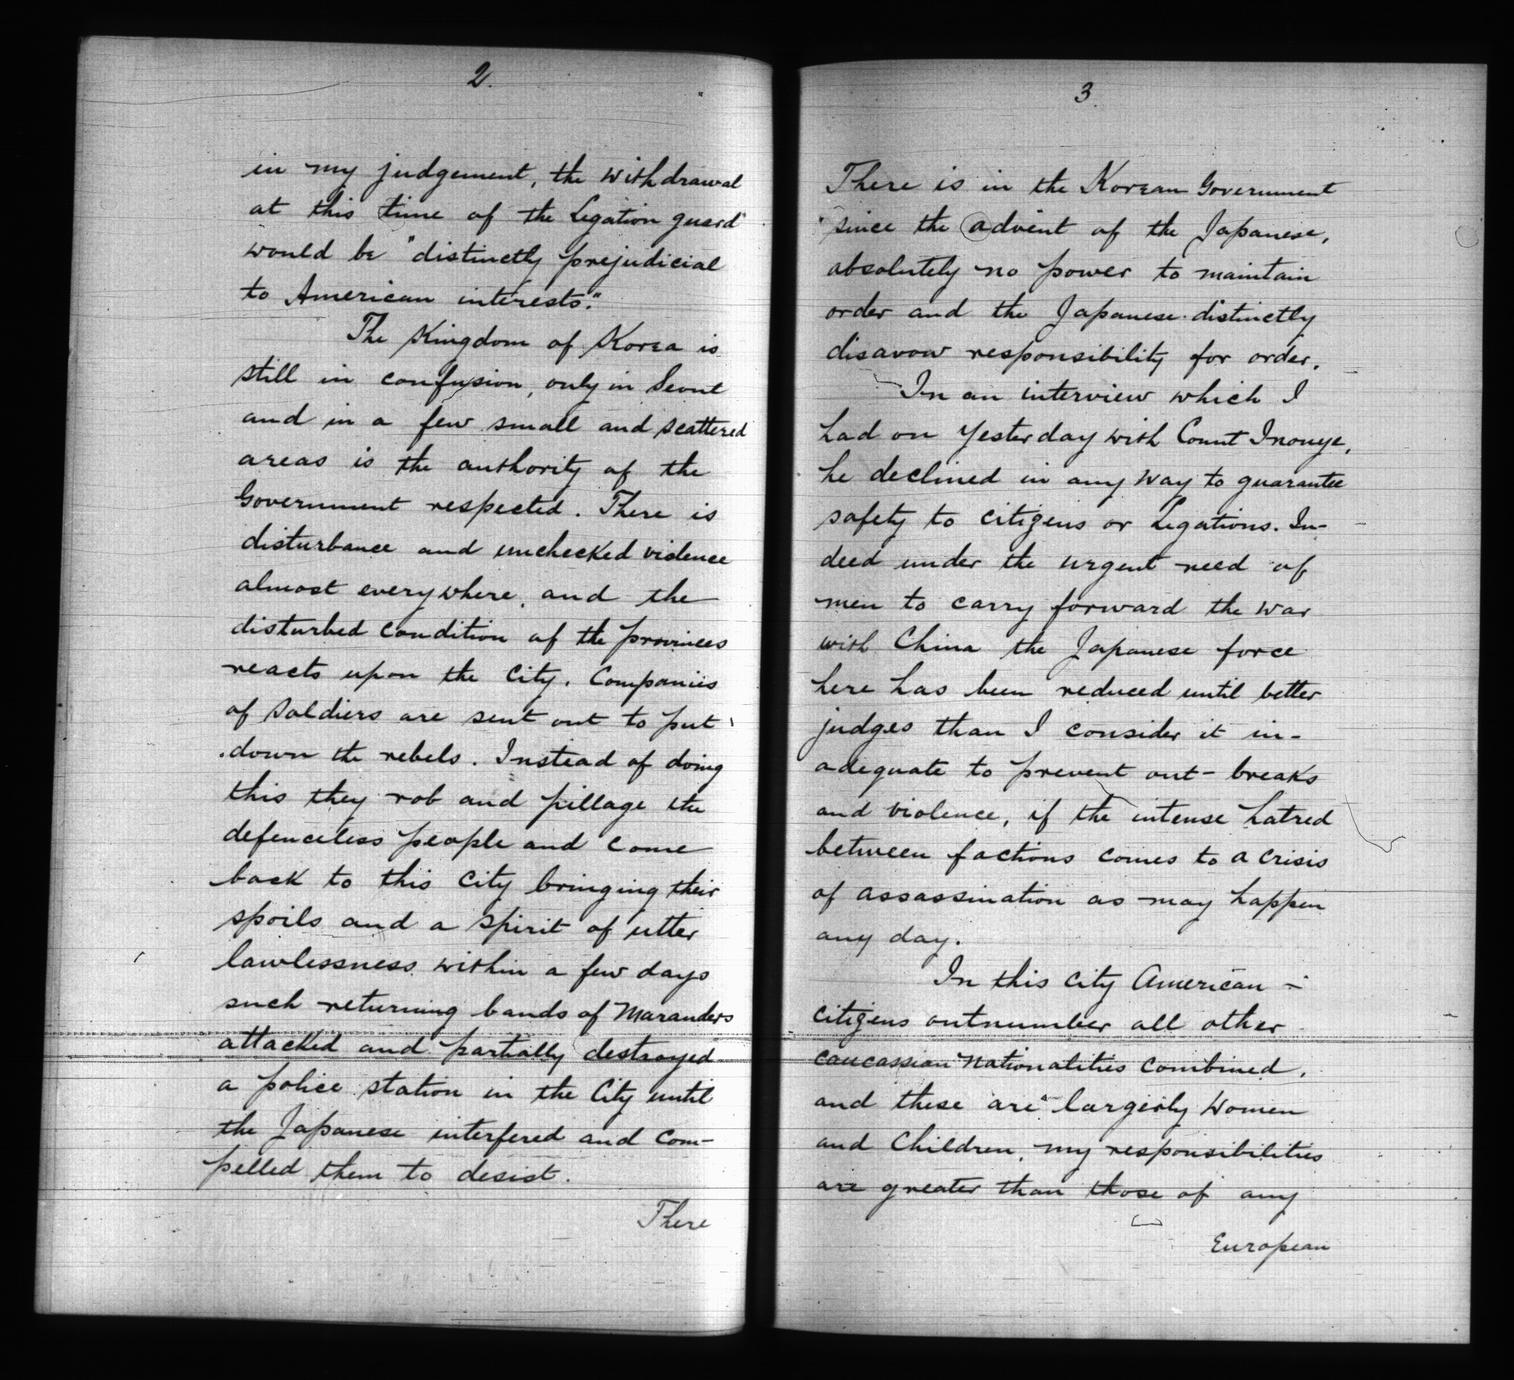 2.
in my judgement, the withdrawal
at this time of the Legation guard
would be "distinctly prejudicial
to American interests."
The Kingdom of Korea is
still in confusion, only in Seoul
and in a few small and scattered
areas is the authority of the
Government respected. There is
disturbance and unchecked violence
almost everywhere, and the
disturbed condition of the provinces
reacts upon the City. Companies
of soldiers are sent out to put
down the rebels. Instead of doing
this they rob and pillage the
defenceless people and come
back to this City bringing their
spoils and a spirit of utter
lawlessness. within a few days
such returning bands of Marauders
attacked and partially destroyed
a police station in the City until
the Japanese interfered and com-
pelled them to desist.
There
3.
There is in the Korean Government
since the advent of the Japanese,
absolutely no power to maintain
order and the Japanese distinctly
disavow responsibility for order.
In an interview which I
had on yesterday with Count Inouye,
he declined in any way to guarantee
safety to citizens or Legations. In-
deed under the urgent need of
men to carry forward the war
with China the Japanese force
here has been reduced until better
judges than I consider it in-
adequate to prevent out-breaks
and violence, if the intense hatred
between factions comes to a crisis
of assassination as may happen
any day.
In this city American -
citizens outnumber all other
caucassian Nationalities combined,
and these are largely Women
and Children, my responsibilities
are greater than those of any
European